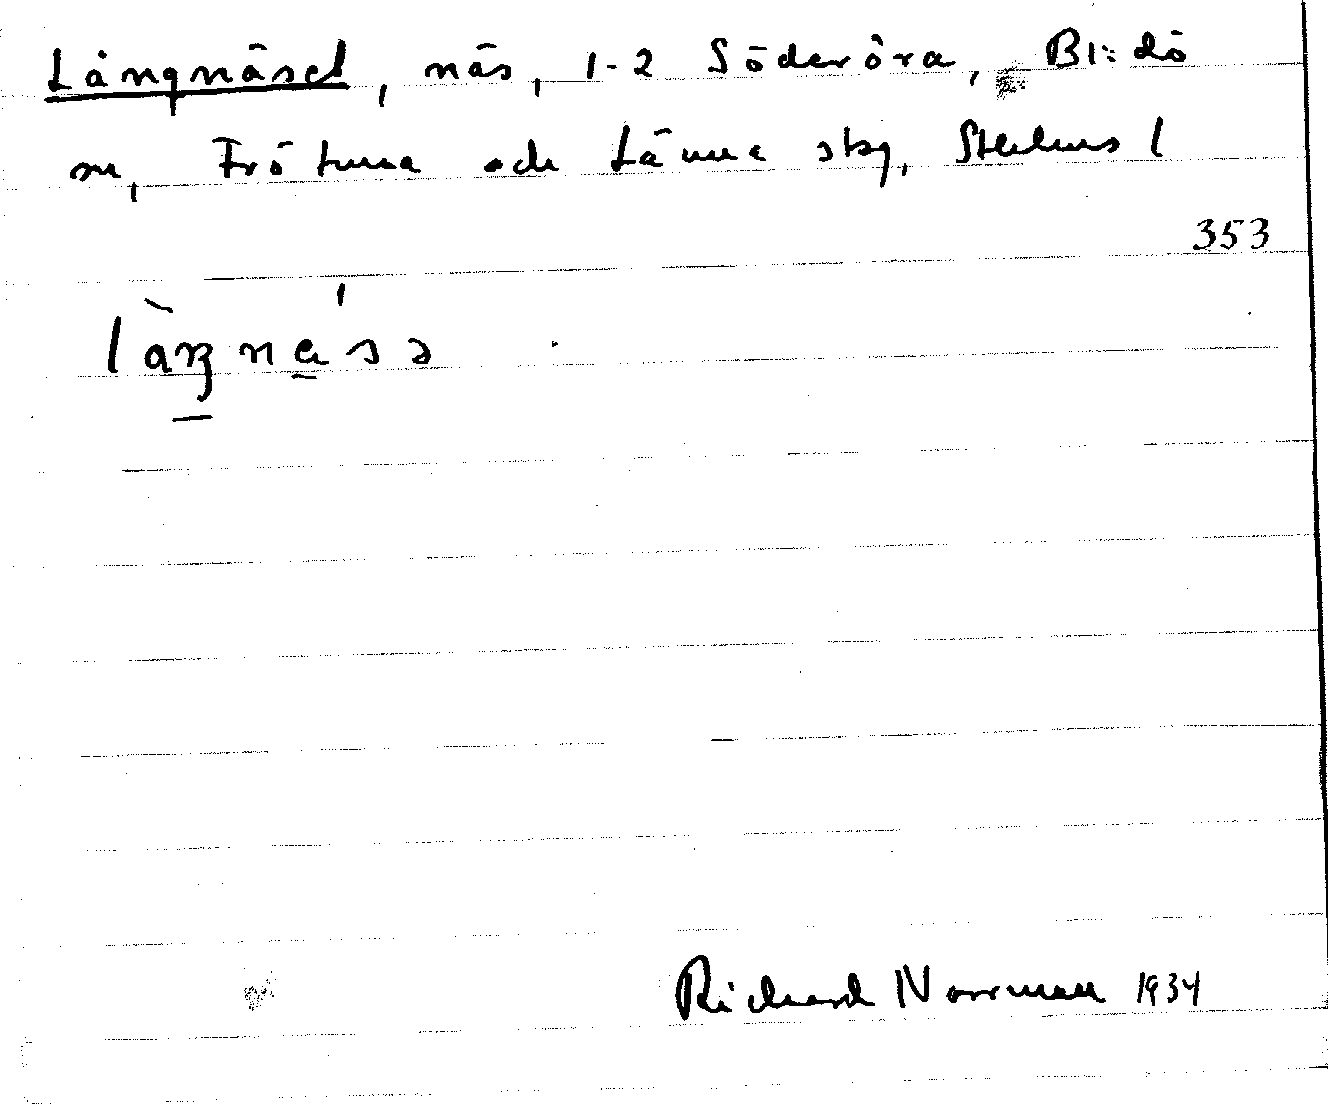 Långnäset, näs, 1-2 Söderöra, Blidö
sn, Frötuna och Länna skg, Sthlms l
353
làŋnésə
Richard Norrman 1934